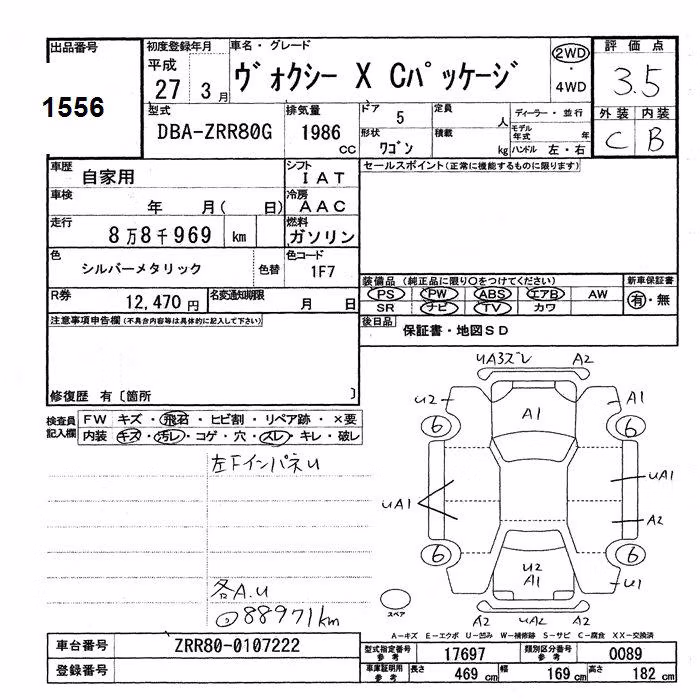 出品番号
1556
初度登録年月
平成
27 3月
車名・グレード
ヴォクシー X Cパッケージ
2WD
・
4WD
評価点
3.5
外装 内装
C B
型式
DBA-ZRR80G
排気量
1986 cc
ドア
5
定員
人
形状
ワゴン
積載
kg
ディーラー・並行
モデル年式 年
ハンドル 左・右
車歴
自家用
シフト
IAT
車検
年 月( 日)
冷房
AAC
走行
8万8千969 km
燃料
ガソリン
色
シルバーメタリック
色替
色コード
1F7
R券
12,470 円
名変通知期限
月 日
セールスポイント(正常に機能するものに限ります)
装備品 (純正品に限り○をつけてください)
新車保証書
PS PW ABS エアB AW
SR ナビ TV カワ
有・無
後日品
保証書・地図SD
注意事項申告欄(不具合内容等は具体的に記入して下さい)
修復歴 有〔箇所 〕
検査員記入欄
FW キズ・飛石・ヒビ割・リペア跡・×要
内装 キズ・汚レ・コゲ・穴・スレ・キレ・破レ
左FインパネU
各A.U
②88971km
UA3ズレ A2
U2 A1 A1
6 6
UA1 UA1
A2
6 6
U2
A1
U1
スペア
A2 UA2 A2
A-キズ E-エクボ U-凹み W-補修跡 S-サビ C-腐食 XX-交換済
車台番号
ZRR80-0107222
登録番号
型式指定番号
参考
17697
類別区分番号
参考
0089
車庫証明用
参考
長さ 469 cm
幅 169 cm
高さ 182 cm